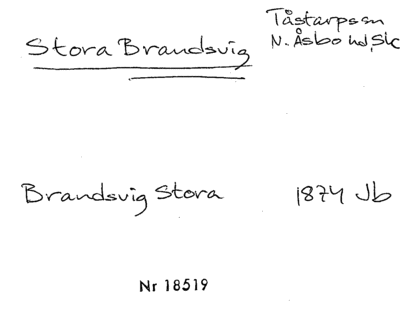 Stora Brandsvig
Tåstarpssn
N. Åsbo hd, Sk
Brandsvig Stora 1874 Jb
Nr 18519